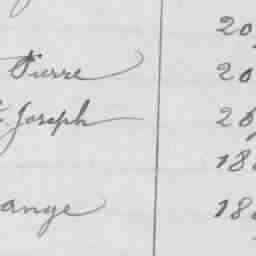 20
Pierre 20
Joseph 20
18
ange 18